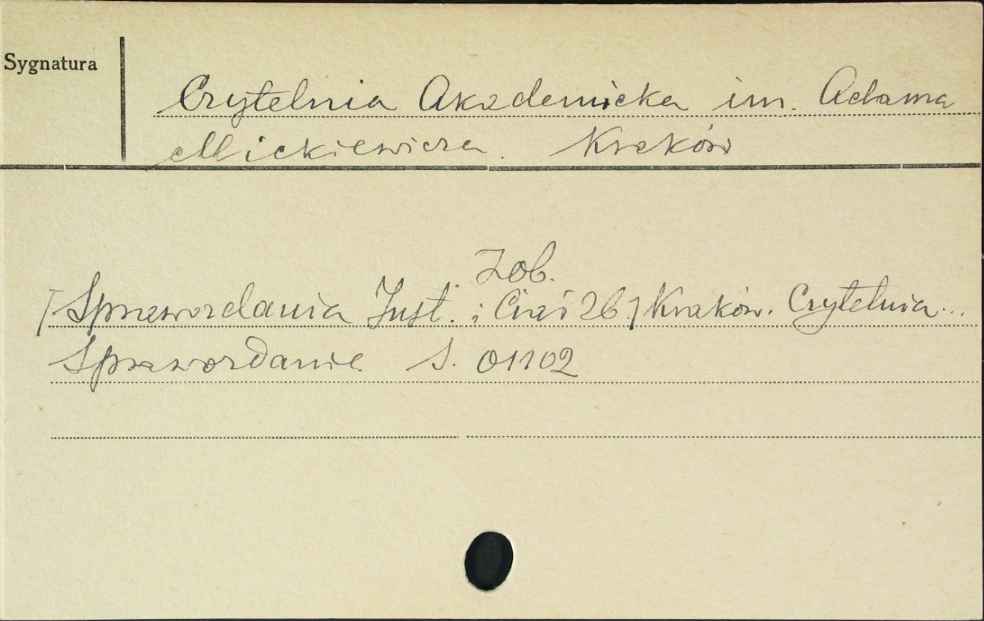 Sygnatura
Czytelnia Akademicka im. Adama
Mickiewicza. Kraków
Zob.
[Sprawozdania Inst. i Ciał 26] Kraków. Czytelnia...
Sprawozdanie S. 01102